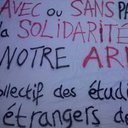 AVEC ou SANS PA
la SOLIDARITÉ
NOTRE AR
collectif des étudi
étrangers de